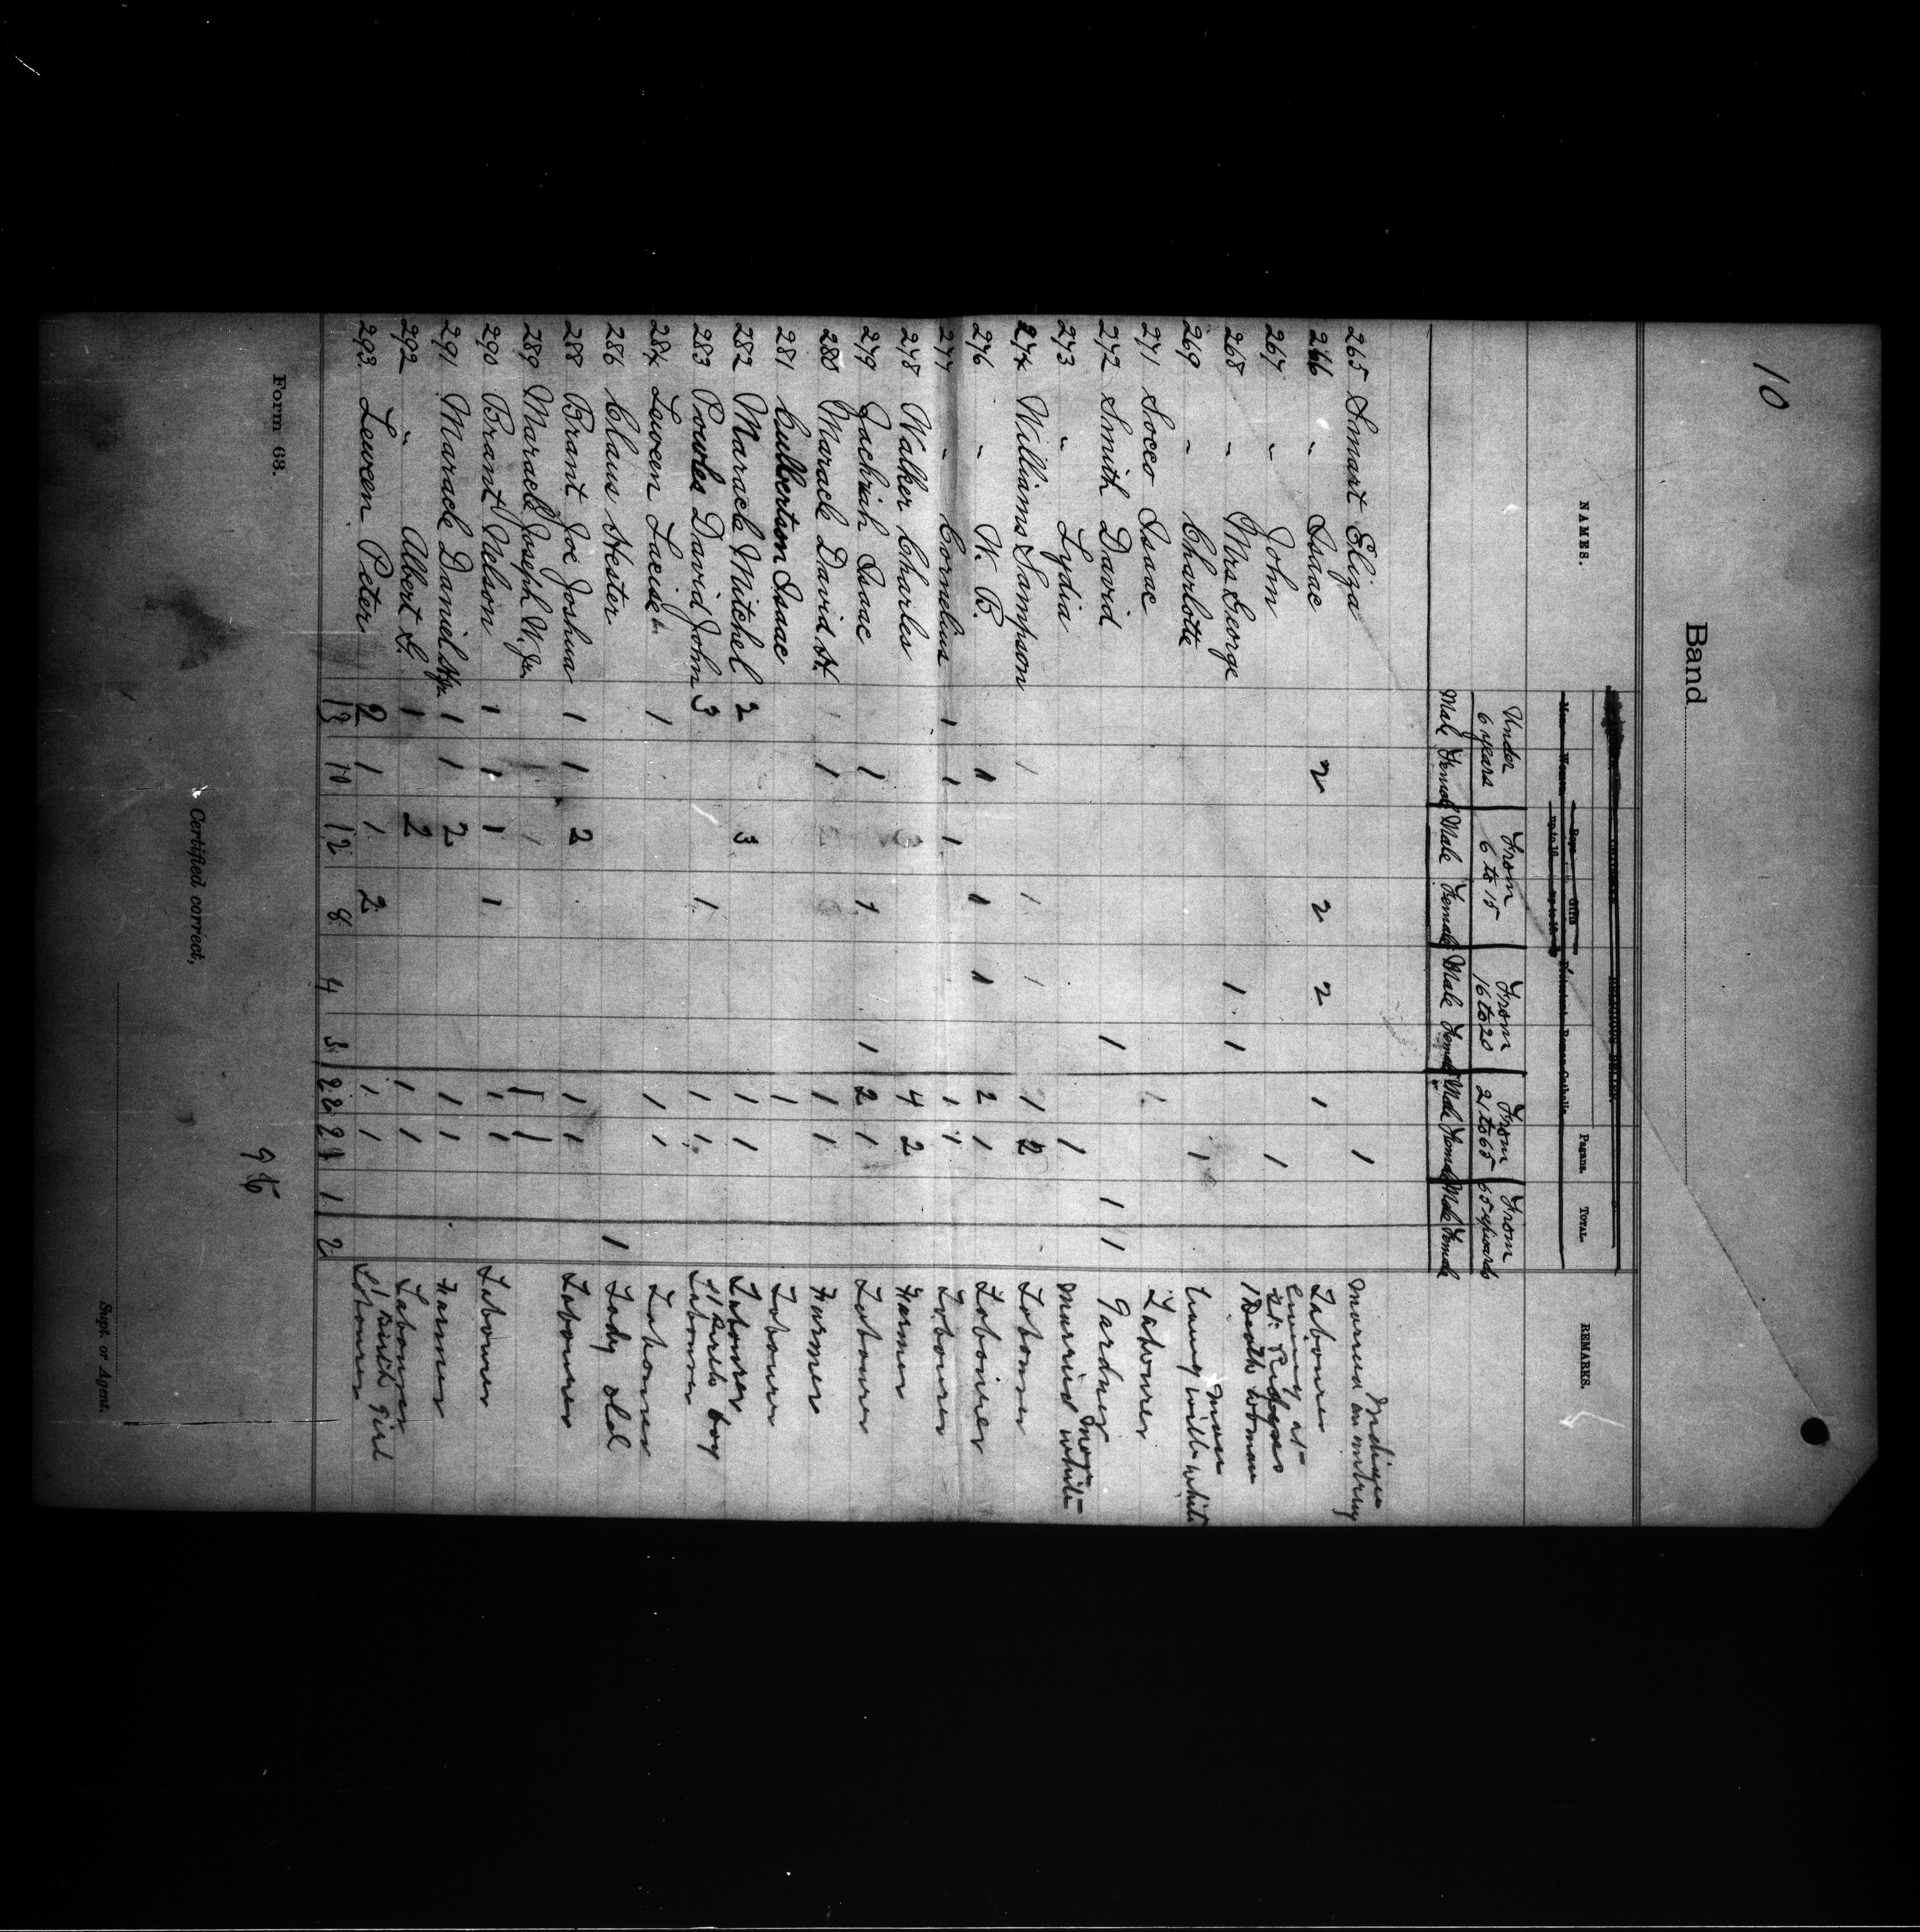 10
Band
NAMES.
RELIGIOUS BELIEF.
Pagans.
TOTAL.
REMARKS.
Under 6 years
From 6 to 15
From 16 to 20
From 21 to 65
From 65 upwards
Male Female Male Female Male Female Male Female Male Female
265 Smart Eliza 1 Married an ordinary Indian
266 " Isaac 2 2 2 1 Labourer
267 " John 1 Living at St. Regis
268 " Mrs George 1 1 1 Death woman
269 " Charlotte 1 Living with white man
271 Socco Isaac 1 Labourer
272 Smith David 1 1 1 Gardner
273 " Lydia 1 Married white
274 Williams Sampson 1 1 1 1 2 Labourer
276 " W. B. 1 1 1 2 1 Labourer
277 " Cornelius 1 1 1 1 1 Labourer
278 Walker Charles 4 2 Farmer
279 Zachriah Isaac 1 1 1 2 1 Labourer
280 Maracle David H. 1 1 1 Farmer
281 Culbertson Isaac 1 Labourer
282 Maracle Mitchel 2 3 1 1 Labourer
283 Powles David John 3 1 1 1 Labourer 1 Birth boy
284 Lewen Lacise 1 1 1 Labourer
286 Claus Hester 1 Lady old
288 Brant Joe Joshua 1 1 2 1 1 Labourer
289 Maracle Joseph W. Jr. 1 1
290 Brant Nelson 1 1 1 1 1 1 Labourer
291 Maracle Daniel 1 1 2 1 1 Farmer
292 " Albert G. 1 2 1 1 Labourer
293 Lewen Peter 2 1 1 2 1 1 Labourer 1 Birth girl
13 10 12 8 4 3 22 21 1 2
96
Form 63.
Certified correct,
Supt. or Agent.